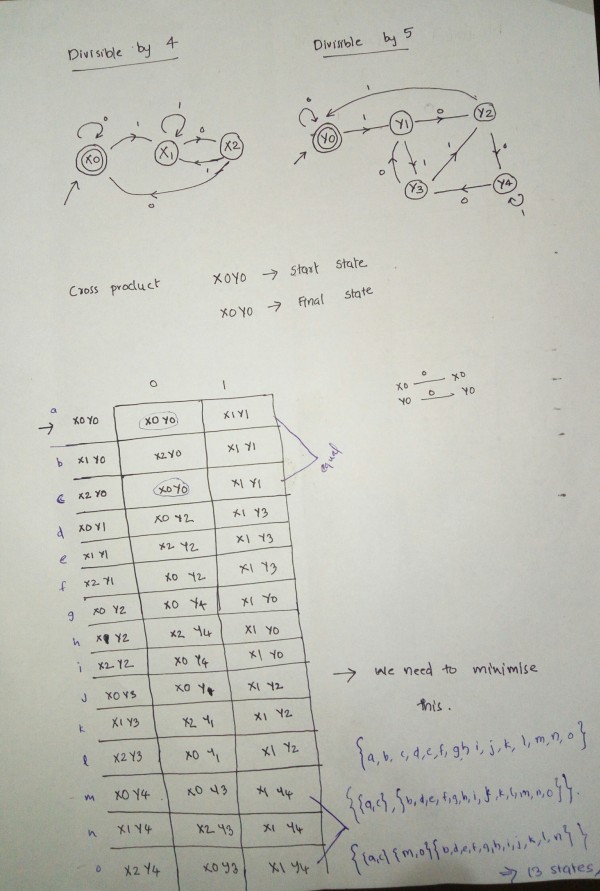 Divisible by 4
Divisible by 5
0 1 0 1 0
X0 X1 X2 1
0 1 1 0 Y0 Y1 Y2
0 1 1 0
Y3 0 Y4 1
Cross product X0Y0 → Start state
X0Y0 → Final state
X0 0 X0
Y0 0 → Y0
0 1
a → X0Y0 X0 Y0 X1 Y1
b X1 Y0 X2 Y0 X1 Y1
c X2 Y0 X0Y0 X1 Y1
equal
d X0 Y1 X0 Y2 X1 Y3
e X1 Y1 X2 Y2 X1 Y3
f X2 Y1 X0 Y2 X1 Y3
g X0 Y2 X0 Y4 X1 Y0
h X1 Y2 X2 Y4 X1 Y0
i X2 Y2 X0 Y4 X1 Y0
j X0 Y3 X0 Y1 X1 Y2
k X1 Y3 X2 Y1 X1 Y2
l X2 Y3 X0 Y1 X1 Y2
m X0 Y4 X0 Y3 X1 Y4
n X1 Y4 X2 Y3 X1 Y4
o X2 Y4 X0 Y3 X1 Y4
→ we need to minimise
this.
{a, b, c, d, e, f, g, h, i, j, k, l, m, n, o}
{{a,c}, {b,d,e,f,g,h,i,j,k,l,m,n,o}}.
{{a,c} {m,o} {b,d,e,f,g,h,i,j,k,l,n}}
→ 13 states